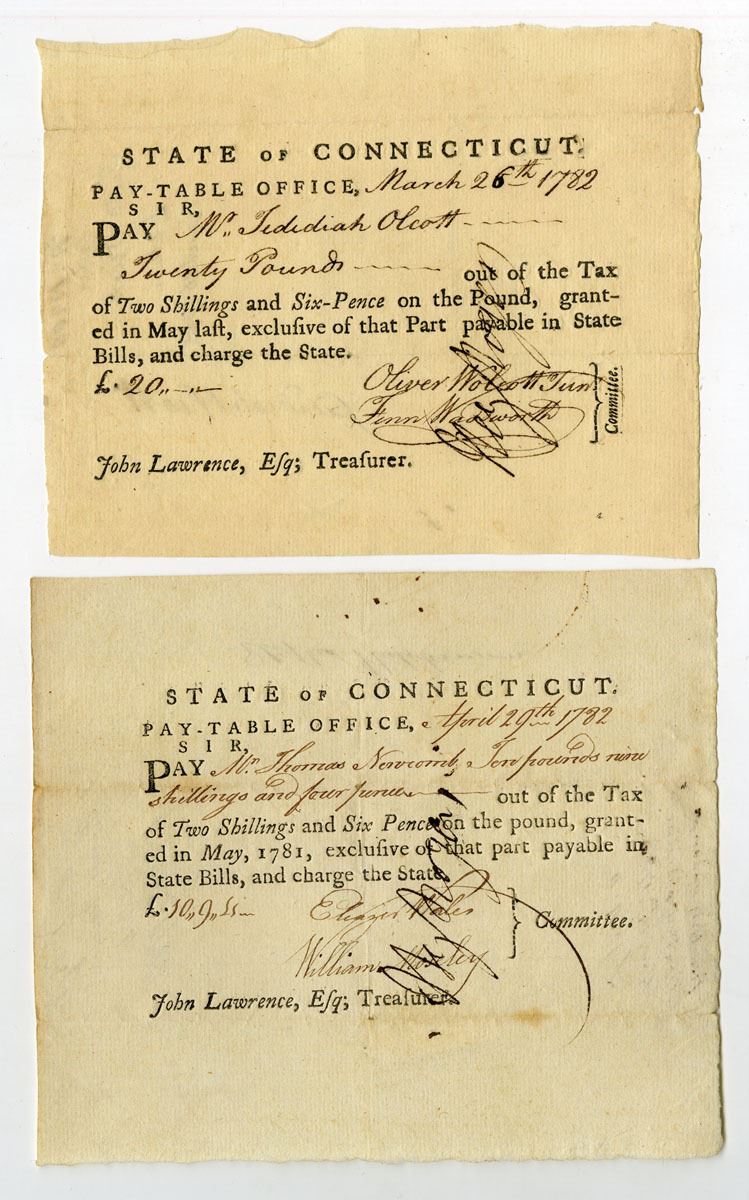 STATE OF CONNECTICUT.
PAY-TABLE OFFICE, March 26th 1782
SIR,
PAY Mr. Jedediah Olcott
Twenty Pounds out of the Tax
of Two Shillings and Six-Pence on the Pound, grant-
ed in May laſt, excluſive of that Part payable in State
Bills, and charge the State.
£. 20,,—,,—
Oliver Wolcott Jun
Fenn Wadsworth
Committee.
John Lawrence, Eſq; Treaſurer.
STATE OF CONNECTICUT.
PAY-TABLE OFFICE, April 29th 1782
SIR,
PAY Mr. Thomas Newcomb, Ten pounds nine
shillings and four pence out of the Tax
of Two Shillings and Six Pence on the pound, grant-
ed in May, 1781, excluſive of that part payable in
State Bills, and charge the State.
£. 10,, 9,,
Eleazer Wales
William Moseley
Committee.
John Lawrence, Eſq; Treaſurer.